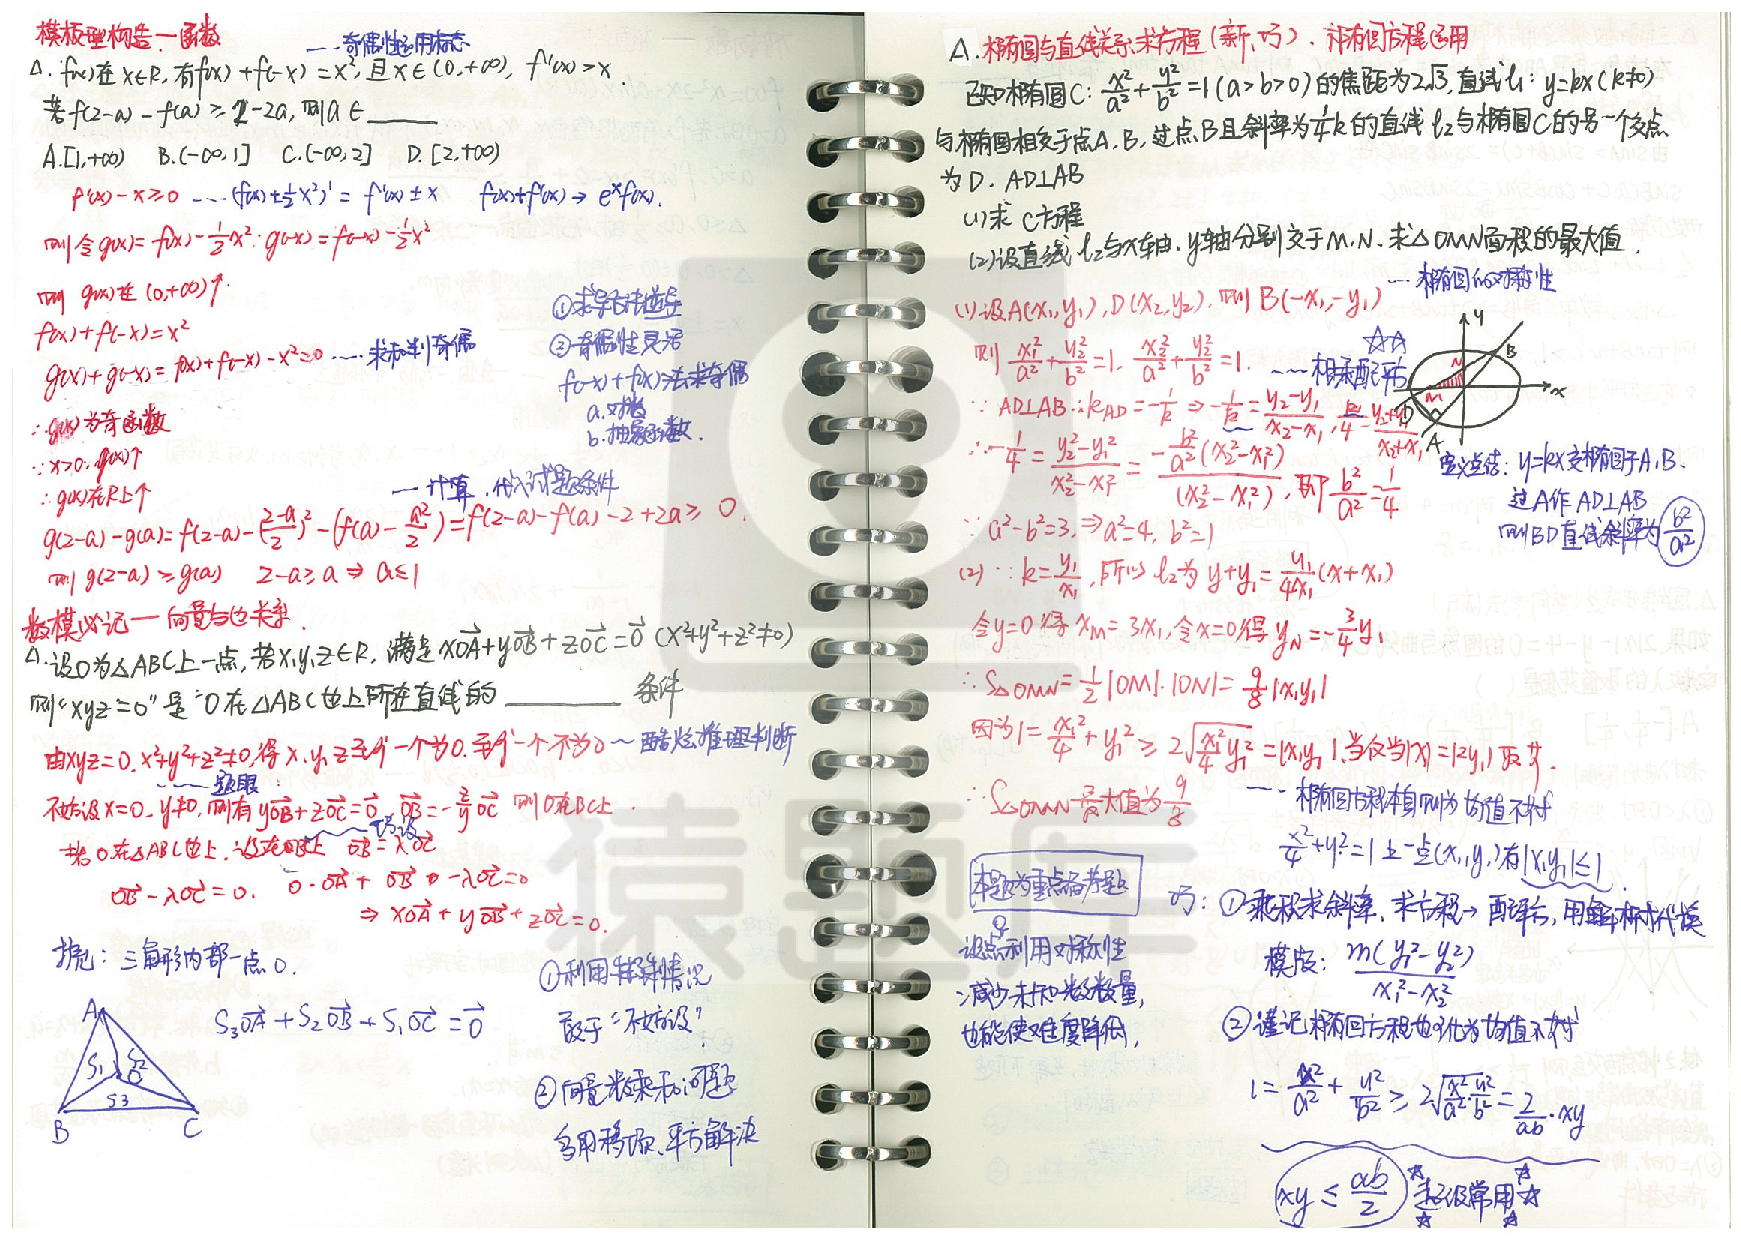 模板型构造—函数
---奇偶性运用标志
△. f(x)在x∈R, 有f(x)+f(-x)=x², 且x∈(0,+∞), f'(x)>x
若f(2-a)-f(a)≥2-2a, 则a∈____
A.[1,+∞) B.(-∞,1] C.(-∞,2] D.[2,+∞)
f'(x)-x≥0 ---(f(x)±½x²)'=f'(x)±x f(x)+f'(x)→e^x f(x).
则令g(x)=f(x)-½x². g(-x)=f(-x)-½x²
则 g(x)在(0,+∞)↑
f(x)+f(-x)=x²
g(x)+g(-x)=f(x)+f(-x)-x²=0 ---求和判奇偶
∴g(x)为奇函数
∵x>0, g(x)↑
∴g(x)在R上↑
①求导法逆导
②奇偶性灵活
f(-x)+f(x)法求奇偶
a.对数
b.抽象函数.
---计算, 代入讨题条件
g(2-a)-g(a)=f(2-a)-(2-a)²/2-(f(a)-a²/2)=f(2-a)-f(a)-2+2a≥0.
则g(2-a)≥g(a) 2-a≥a⇒a≤1
数模必记—向量与边关系.
△.设O为△ABC上一点, 若x,y,z∈R, 满足xOA+yOB+zOC=0 (x²+y²+z²≠0)
则“xyz=0”是“O在△ABC边上所在直线的____条件
由xyz=0, x²+y²+z²≠0, 得x,y,z至少一个为0. 至少一个不为0~酷炫推理判断
---题眼
不妨设x=0, y≠0, 则有yOB+zOC=0, OB=-z/y OC 则O在BC上.
巧设
若O在△ABC边上, 设在BC上 OB=λOC
OB-λOC=0. 0·OA+OB-λOC=0
⇒xOA+yOB+zOC=0.
拓: 三角形内部一点O.
S₃OA+S₂OB+S₁OC=0
A
S₁ S₂
O
S₃
B C
①利用特殊情况
敢于“不妨设”
②向量数乘和问题
多用移项、平方解决
△.椭圆与直线关系求方程(新、巧)、椭圆方程运用
已知椭圆C: x²/a²+y²/b²=1(a>b>0)的焦距为2√3, 直线l₁: y=kx(k≠0)
与椭圆相交于点A、B, 过点B且斜率为¼k的直线l₂与椭圆C的另一个交点
为D. AD⊥AB
(1)求C方程
(2)设直线l₂与x轴、y轴分别交于M、N、求△OMN面积的最大值.
---椭圆的对称性
(1)设A(x₁,y₁), D(x₂,y₂), 则B(-x₁,-y₁)
则 x₁²/a²+y₁²/b²=1, x₂²/a²+y₂²/b²=1.
☆☆
~~相乘配方
∵AD⊥AB∴k_AD=-1/k ⇒ -1/k=(y₂-y₁)/(x₂-x₁), k/4=(y₂+y₁)/(x₂+x₁)
∴-1/4=(y₂²-y₁²)/(x₂²-x₁²)=-b²/a²(x₂²-x₁²)/(x₂²-x₁²), 即b²/a²=1/4
∵a²-b²=3, ⇒a²=4, b²=1
y
B
N
M
x
D
A
定义点法: y=kx交椭圆于A、B.
过A作AD⊥AB
则BD直线斜率为b²/a²
(2)∵k=y₁/x₁, 所以l₂为y+y₁=y₁/4x₁(x+x₁)
令y=0得x_M=3x₁, 令x=0得y_N=-¾y₁
∴S△OMN=½|OM|·|ON|=9/8|x₁y₁|
因为1=x₁²/4+y₁²≥2√(x₁²/4 y₁²)=|x₁y₁|, 当仅当|x₁|=|2y₁|取等.
∴S△OMN最大值为9/8
---椭圆方程本身则为均值不等式
x²/4+y²=1上一点(x₁,y₁)有|x₁y₁|≤1.
本题为重点备考题
设点利用对称性
减少未知数数量,
也能使难度降低.
巧: ①乘积求斜率, 求方程→配平方, 用解析式代换
模版: m(y₁²-y₂²)/(x₁²-x₂²)
②谨记椭圆方程也可化为均值不等式
1=x²/a²+y²/b²≥2√(x²/a²·y²/b²)=2/ab·xy
xy≤ab/2 超级常用☆
猿题库